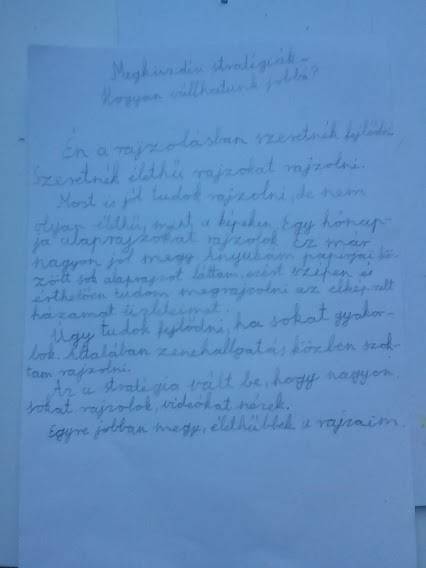 Megküzdési stratégiák –
Hogyan válhatunk jobbá?
Én a rajzolásban szeretnék fejlődni.
Szeretnék élethű rajzokat rajzolni.
Most is jól tudok rajzolni, de nem
olyan élethű, mint a képeken. Egy hónap-
ja alaprajzokat rajzolok. Ez már
nagyon jól megy. Anyukám papírjai kö-
zött sok alaprajzot láttam, ezért szépen és
érthetően tudom megrajzolni az elképzelt
házamat
Úgy tudok fejlődni, ha sokat gyakor-
lok. Általában zenehallgatás közben szok-
tam rajzolni.
Az a stratégia vált be, hogy nagyon
sokat rajzolok, videókat nézek.
Egyre jobban megy, élethűbbek a rajzaim.